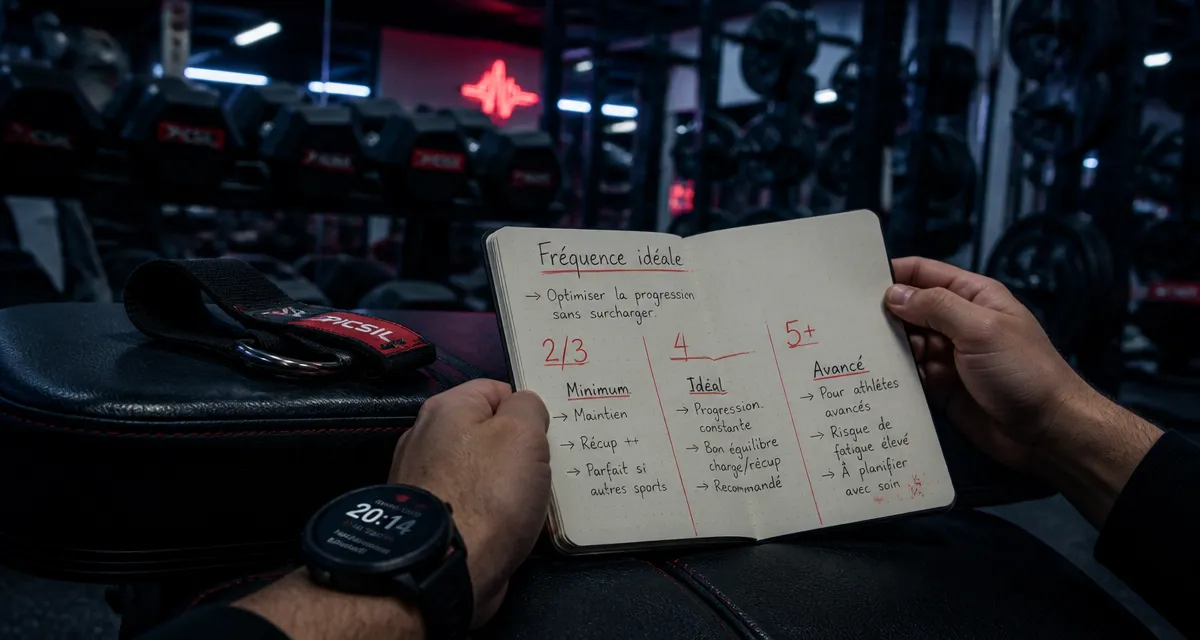 Fréquence idéale
→ Optimiser la progression
sans surcharger.
2/3
Minimum
→ Maintien
→ Récup ++
→ Parfait si
autres sports
4
Idéal
→ Progression.
constante
→ Bon équilibre
charge/récup
→ Recommandé
5+
Avancé
→ Pour athlètes
avancés
→ Risque de
fatigue élevé
→ À planifier
avec soin
PICSIL
20:14
PICSIL
PICSIL